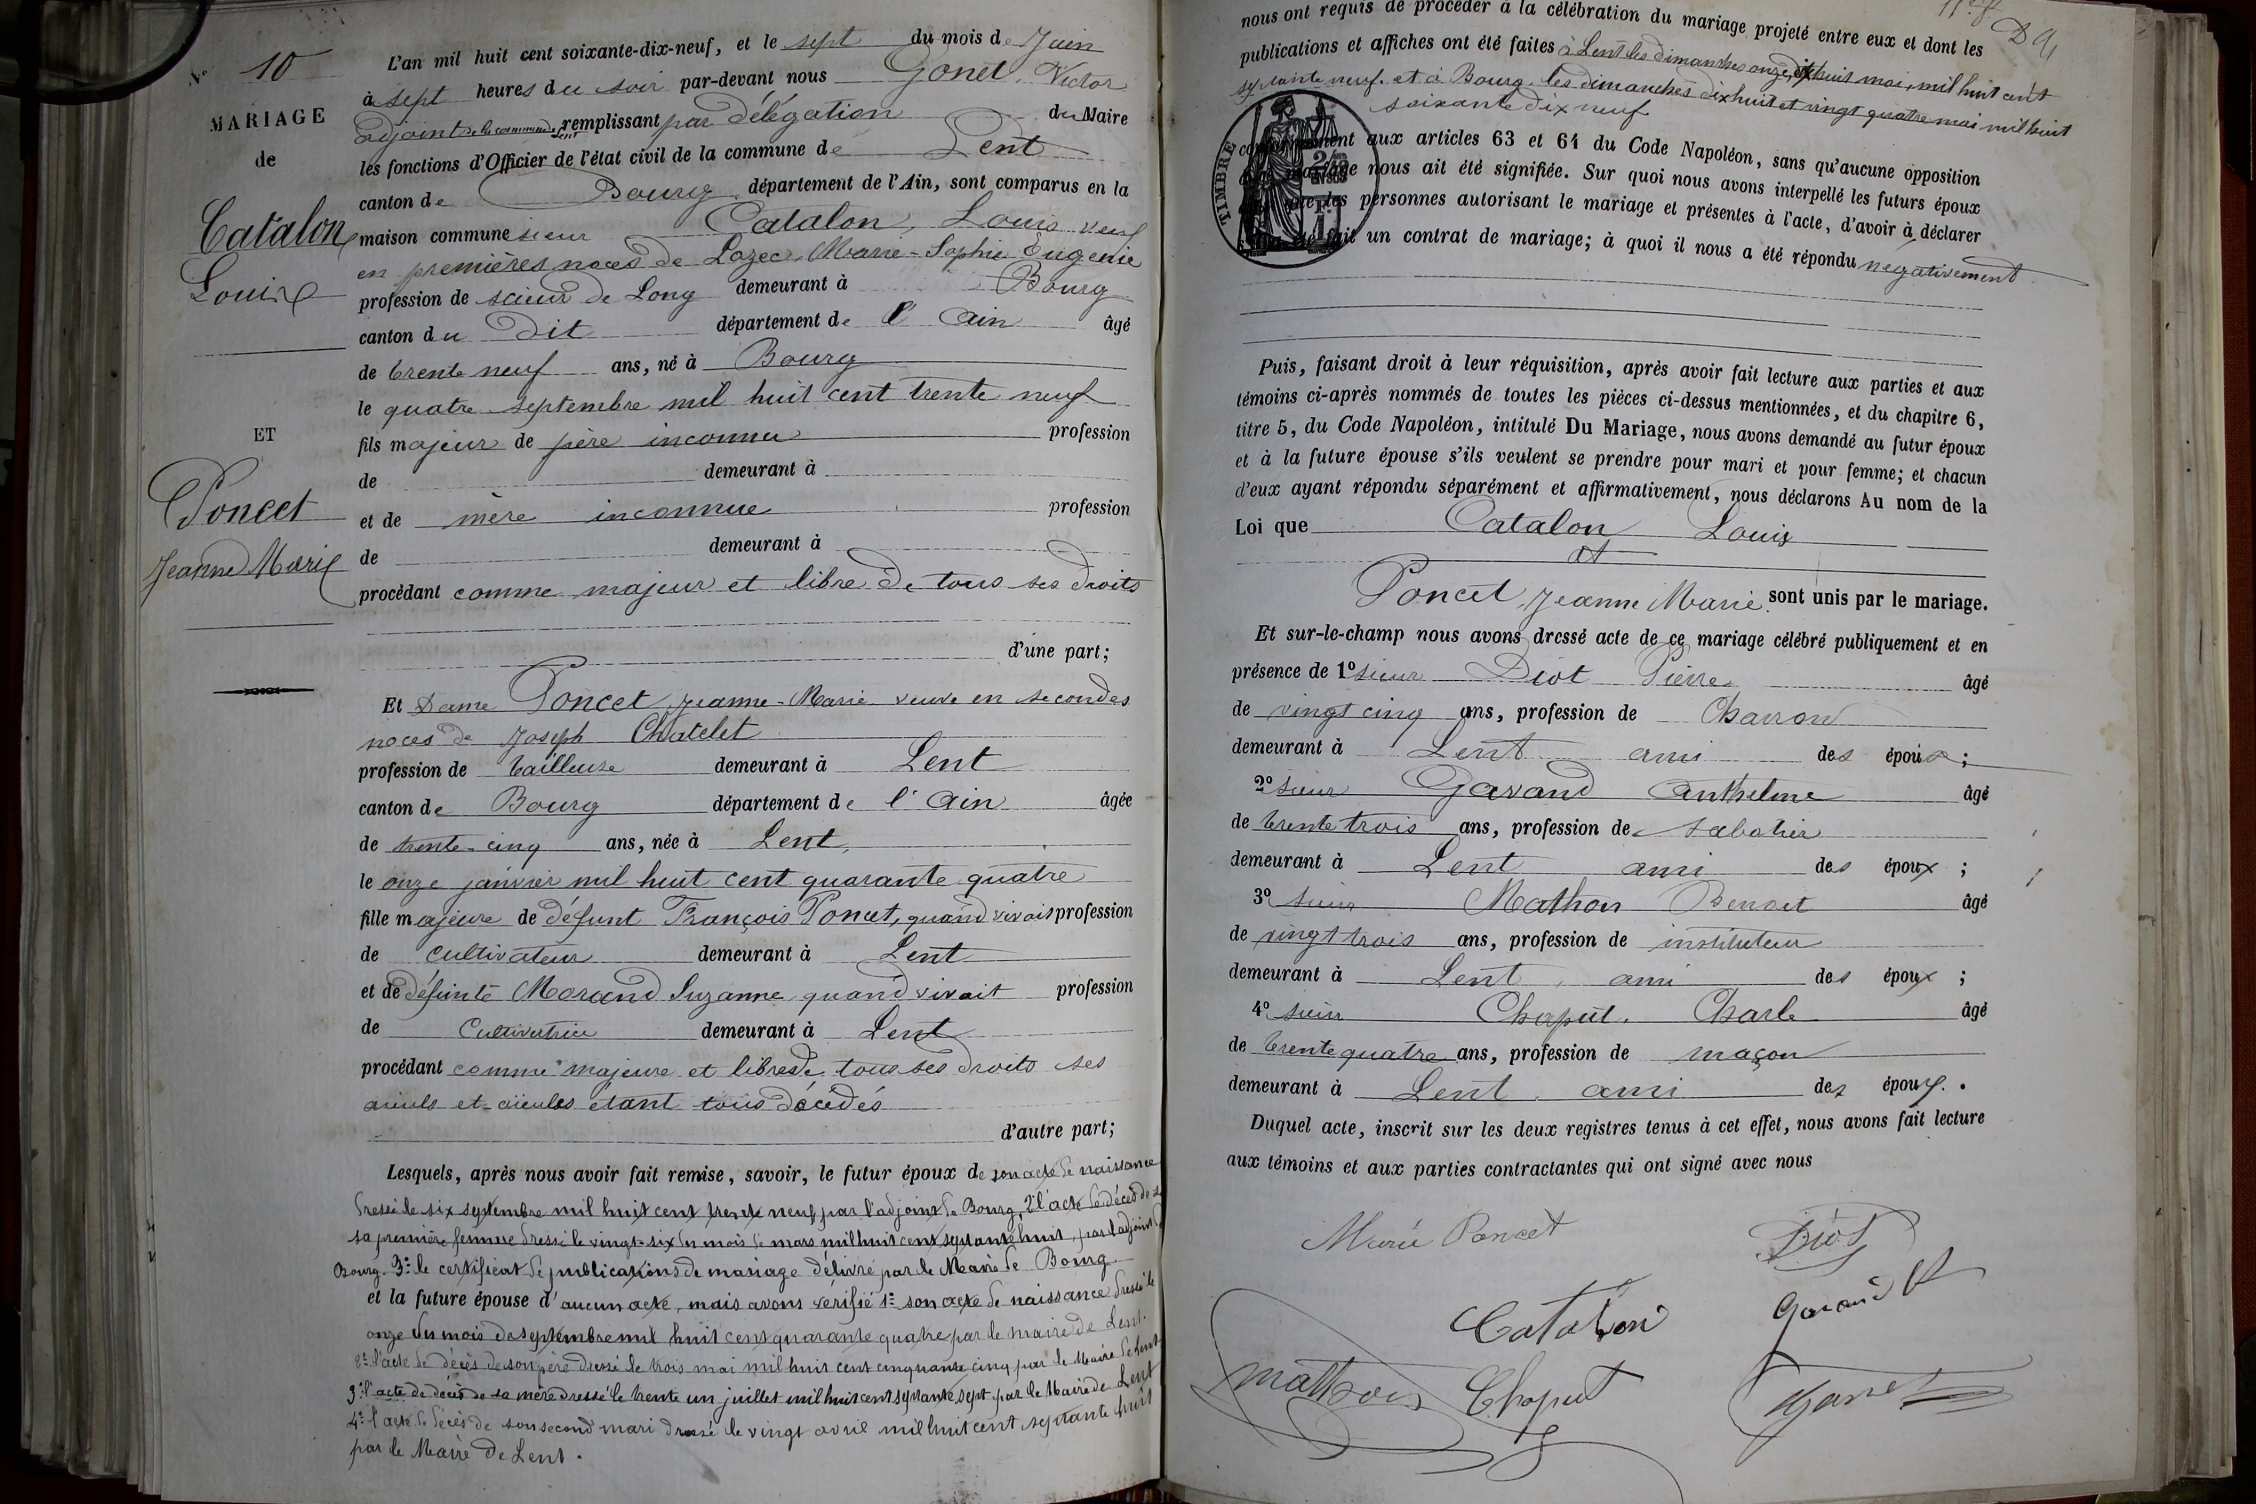 N° 10
MARIAGE
de
Catalon
Louis
ET
Poncet
Jeanne Marie
L'an mil huit cent soixante-dix-neuf, et le sept du mois de Juin
à sept heures du soir par-devant nous Gonet, Victor
adjoint de la commune de Lent remplissant par délégation du Maire
les fonctions d'Officier de l'état civil de la commune de Lent
canton de Bourg département de l'Ain, sont comparus en la
maison commune sieur Catalon, Louis veuf
en premières noces de Lazec, Marie-Sophie Eugenie
profession de scieur de Long demeurant à Bourg
canton du Dit département de l'Ain âgé
de trente neuf ans, né à Bourg
le quatre septembre mil huit cent trente neuf
fils majeur de père inconnu profession
de demeurant à
et de mère inconnue profession
de demeurant à
procédant comme majeur et libre de tous ses droits
d'une part;
Et Dame Poncet, Jeanne-Marie veuve en secondes
noces de Joseph Chatelet
profession de tailleuse demeurant à Lent
canton de Bourg département de l'Ain âgée
de trente-cinq ans, née à Lent,
le onze janvier mil huit cent quarante quatre
fille majeure de défunt François Poncet, quand vivait profession
de cultivateur demeurant à Lent
et de défunte Morand Suzanne quand vivait profession
de Cultivatrice demeurant à Lent
procédant comme majeure et libre de tous ses droits ses
aieuls et aïeules étant tous décédés
d'autre part;
Lesquels, après nous avoir fait remise, savoir, le futur époux de son acte de naissance
dressé le six septembre mil huit cent trente neuf par l'adjoint de Bourg, 2° l'acte de décès de
sa première femme dressé le vingt-six du mois de mars mil huit cent septante huit, par l'adjoint de
Bourg. 3° le certificat de publications de mariage délivré par le Maire de Bourg
et la future épouse d'aucun acte, mais avons vérifié 1° son acte de naissance dressé le
onze du mois de septembre mil huit cent quarante quatre par le maire de Lent.
2° l'acte de décès de son père dressé le trois mai mil huit cent cinquante cinq par le Maire de Lent
3° l'acte de décès de sa mère dressé le trente un juillet mil huit cent septante sept par le Maire de Lent
4° l'acte de décès de son second mari dressé le vingt avril mil huit cent septante huit
par le Maire de Lent.
nous ont requis de procéder à la célébration du mariage projeté entre eux et dont les
publications et affiches ont été faites à Lent les dimanches onze, dix huit mai, mil huit cent
septante neuf. et à Bourg les dimanches dix huit et vingt quatre mai mil huit
soixante dix neuf
TIMBRE
conformément aux articles 63 et 64 du Code Napoléon, sans qu'aucune opposition
mariage nous ait été signifiée. Sur quoi nous avons interpellé les futurs époux
que les personnes autorisant le mariage et présentes à l'acte, d'avoir à déclarer
fait un contrat de mariage; à quoi il nous a été répondu négativement
Puis, faisant droit à leur réquisition, après avoir fait lecture aux parties et aux
témoins ci-après nommés de toutes les pièces ci-dessus mentionnées, et du chapitre 6,
titre 5, du Code Napoléon, intitulé Du Mariage, nous avons demandé au futur époux
et à la future épouse s'ils veulent se prendre pour mari et pour femme; et chacun
d'eux ayant répondu séparément et affirmativement, nous déclarons Au nom de la
Loi que Catalon Louis
et
Poncet Jeanne Marie sont unis par le mariage.
Et sur-le-champ nous avons dressé acte de ce mariage célébré publiquement et en
présence de 1° sieur Diot Pierre âgé
de vingt cinq ans, profession de Charron
demeurant à Lent ami des époux;
2° sieur Gavand Anthelme âgé
de trente trois ans, profession de sabotier
demeurant à Lent ami des époux;
3° sieur Mathon Benoit âgé
de vingt trois ans, profession de instituteur
demeurant à Lent, ami des époux;
4° sieur Chaput, Charle âgé
de trente quatre ans, profession de maçon
demeurant à Lent, ami des époux.
Duquel acte, inscrit sur les deux registres tenus à cet effet, nous avons fait lecture
aux témoins et aux parties contractantes qui ont signé avec nous
Marie Poncet Diot
Catalon Gavand
Mathon Chaput Gonet